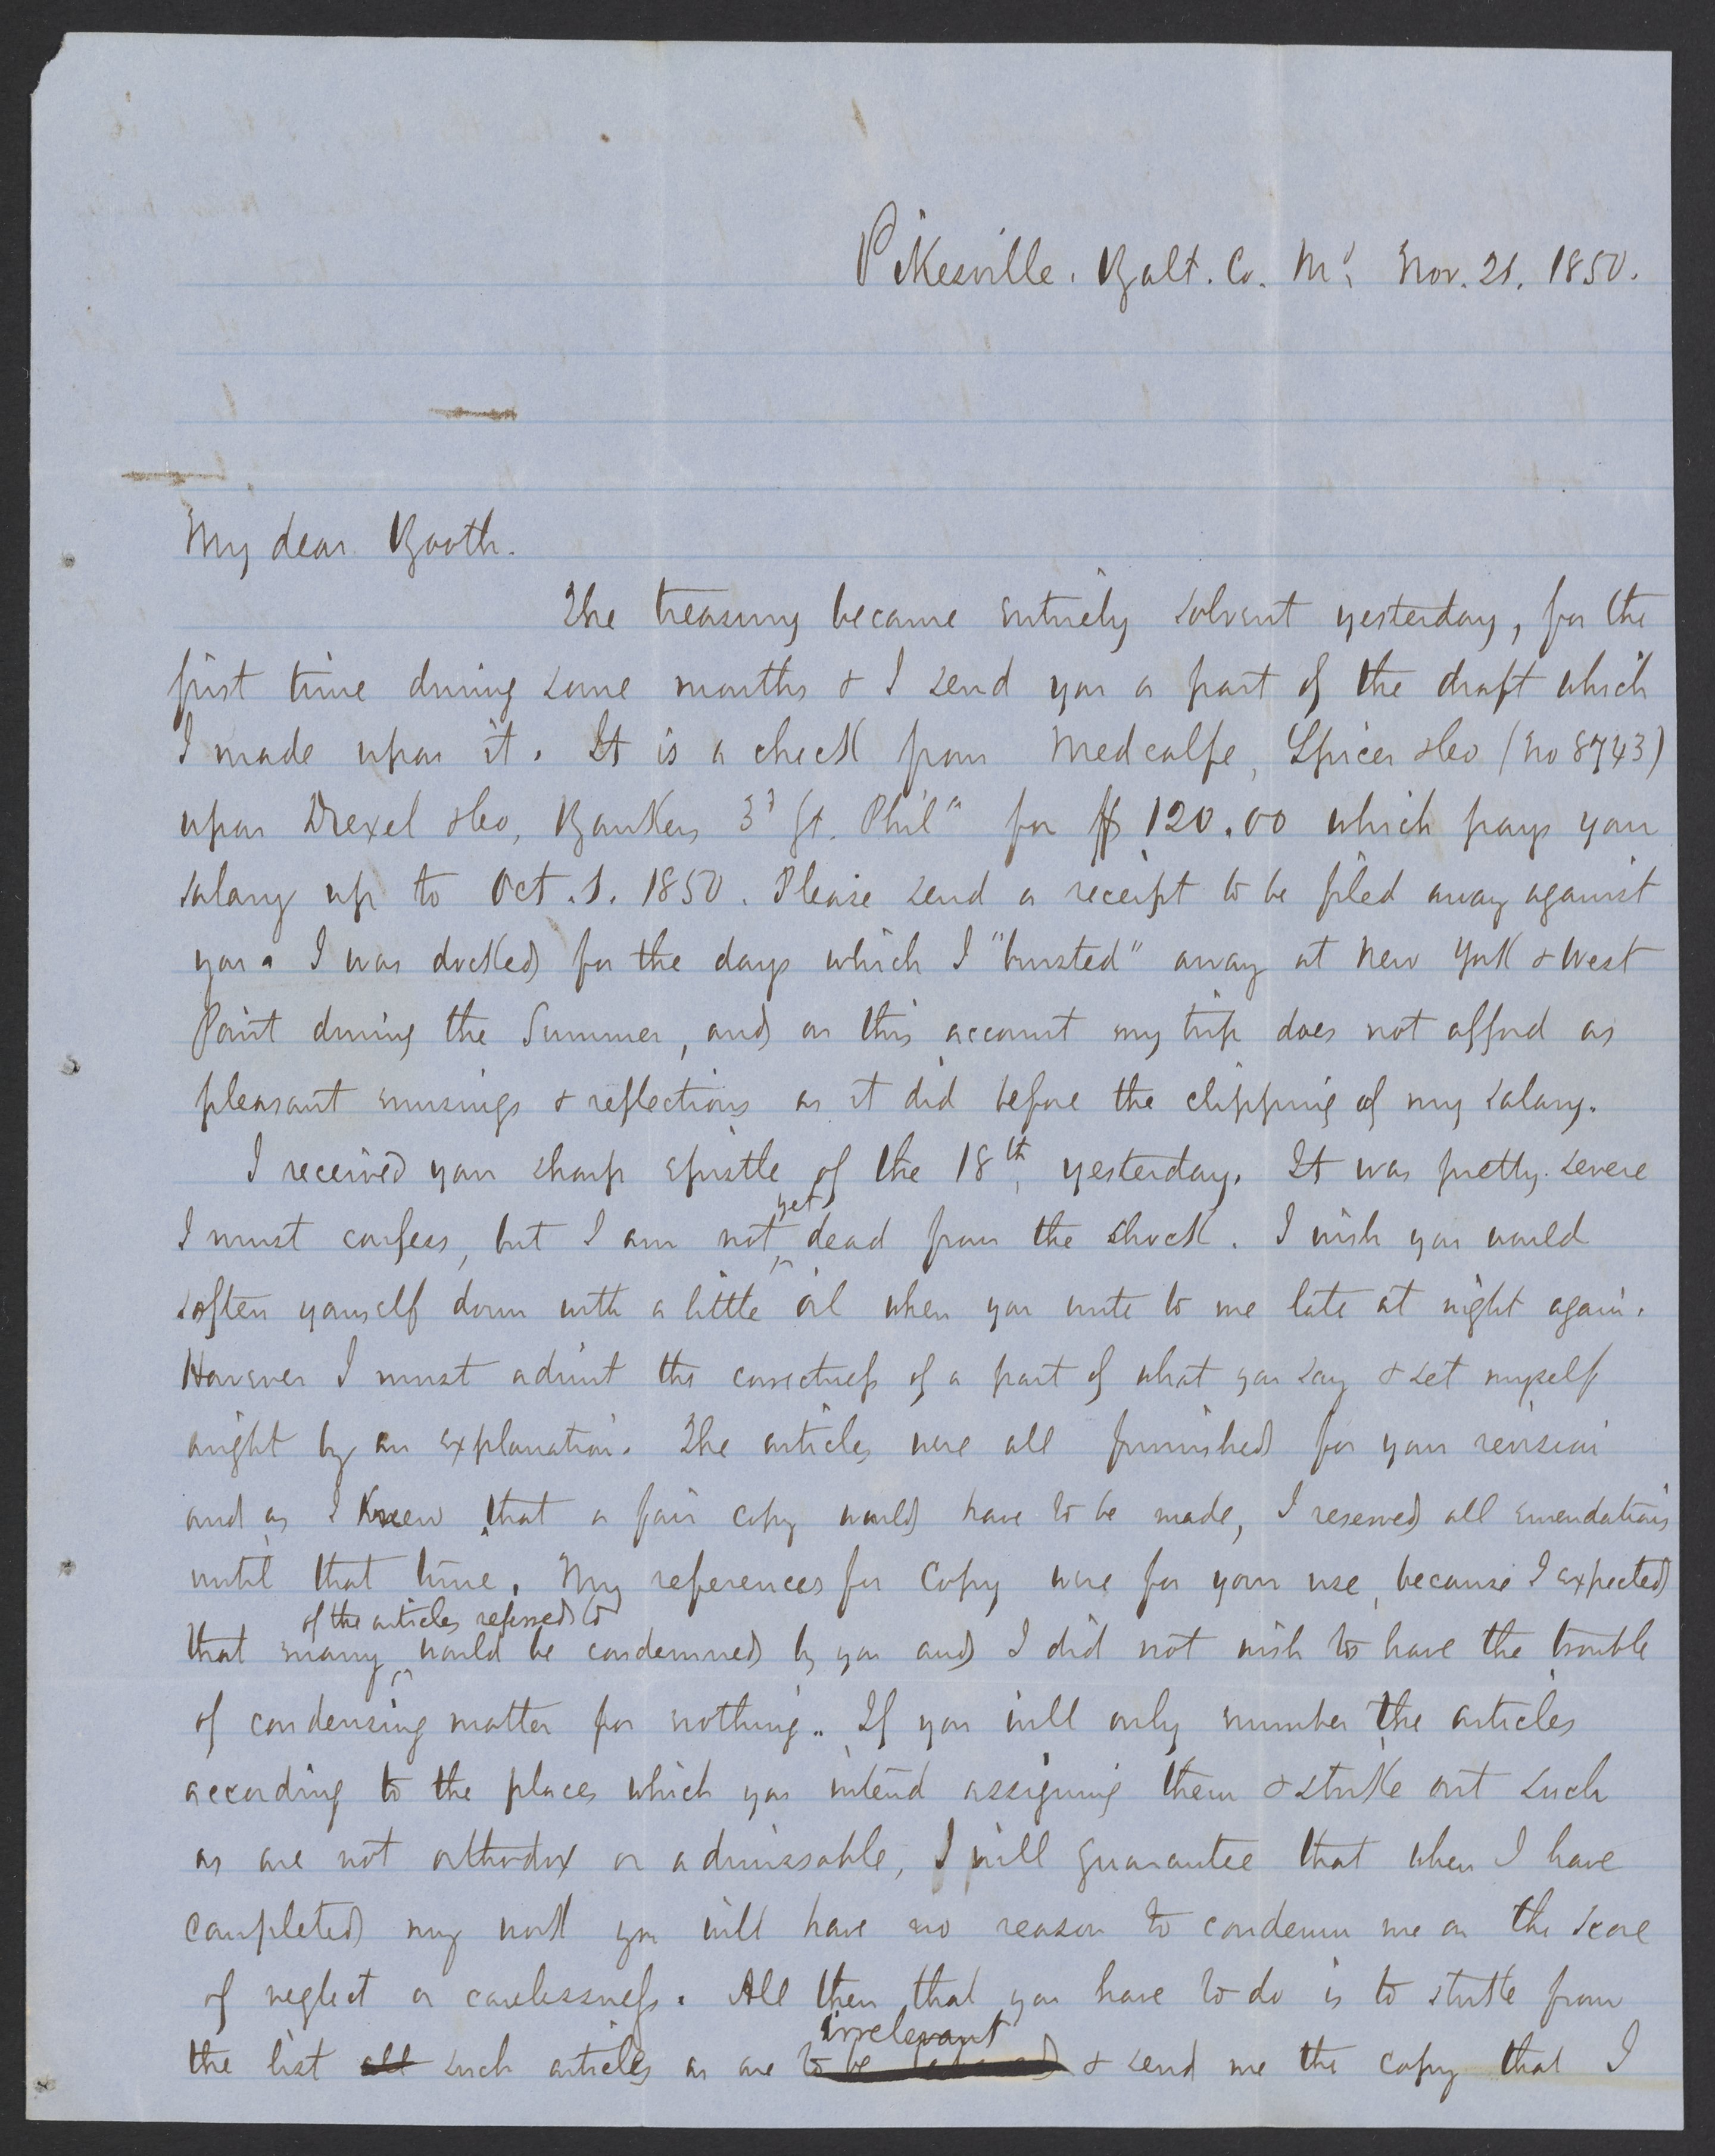 Pikesville. Balt. Co. Md. Nov. 21. 1850.
My dear Booth.
The treasury became entirely solvent yesterday, for the
first time during some months & I send you a part of the draft which
I made upon it. It is a check from Medcalfe, Spicer & Co (No 8743)
upon Drexel & Co, Bankers 3d St. Phila for $120.00 which pays your
salary up to Oct. 1. 1850. Please send a receipt to be filed away against
you. I was docked for the days which I "busted" away at New York & West
Point during the Summer, and on this account my trip does not afford as
pleasant musings & reflections as it did before the clipping of my salary.
I received your sharp epistle of the 18th, yesterday. It was pretty severe
I must confess, but I am not yet dead from the shock. I wish you would
soften yourself down with a little oil when you write to me late at night again.
However I must admit the correctness of a part of what you say & set myself
aright by an explanation. The articles were all furnished for your revision
and as I knew that a fair copy would have to be made, I reserved all emendations
until that time. My references for Copy were for your use, because I expected
that many of the articles referred to would be condemned by you and I did not wish to have the trouble
of condensing matter for nothing. If you will only number the articles
according to the places which you intend assigning them & strike out such
as are not orthodox or admissable, I will guarantee that when I have
completed my work you will have no reason to condemn me on the score
of neglect or carelessness. All then that you have to do is to strike from
the list all such articles as are to be irrelevant & send me the copy that I